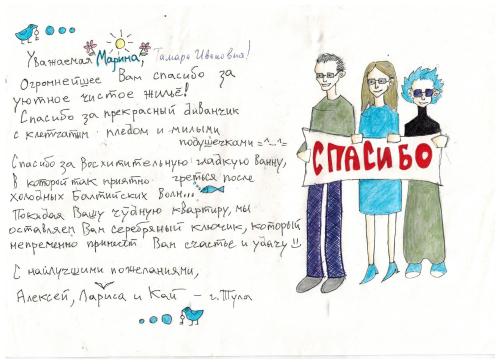 Уважаемая Марина, Тамара Ивановна!
Огромнейшее Вам спасибо за
уютное чистое жильё!
Спасибо за прекрасный диванчик
с клетчатым пледом и милыми
подушечками =^...^=
Спасибо за восхитительную гладкую ванну,
в которой так приятно греться после
холодных Балтийских волн...
Покидая Вашу чудную квартиру, мы
оставляем Вам серебряный ключик, который
непременно принесёт Вам счастье и удачу !!
С наилучшими пожеланиями,
Алексей, Лариса и Кай – г. Тула
СПАСИБО